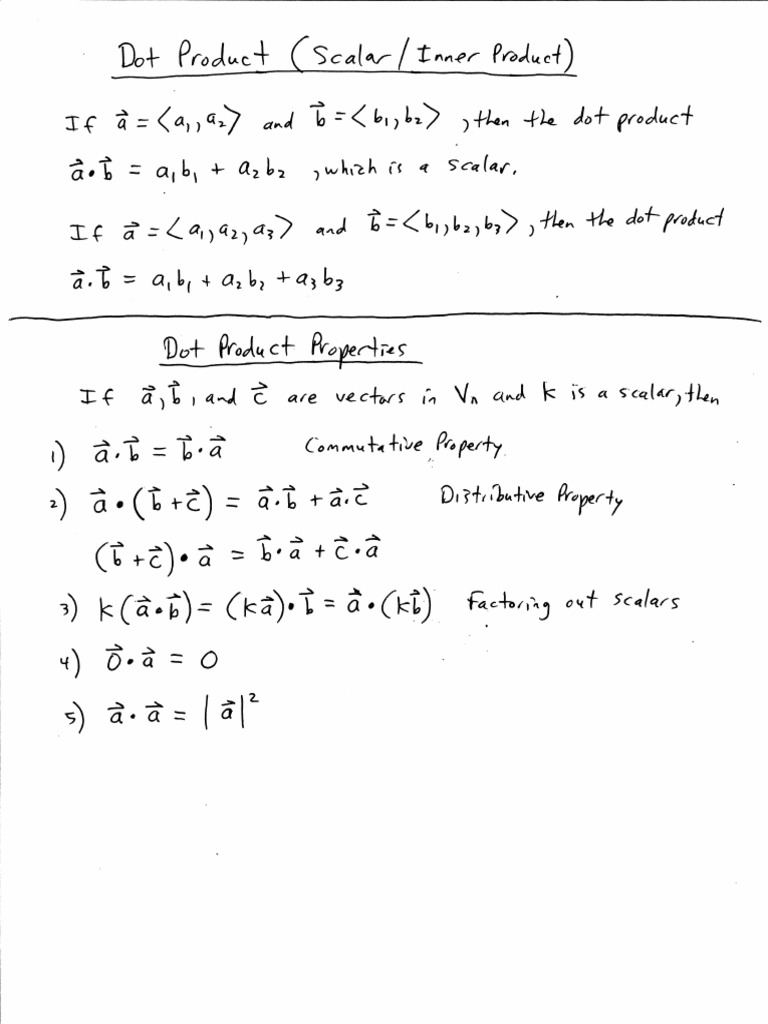 Dot Product (Scalar/Inner Product)
If a⃗ = ⟨a₁, a₂⟩ and b⃗ = ⟨b₁, b₂⟩, then the dot product
a⃗·b⃗ = a₁b₁ + a₂b₂, which is a scalar.
If a⃗ = ⟨a₁, a₂, a₃⟩ and b⃗ = ⟨b₁, b₂, b₃⟩, then the dot product
a⃗·b⃗ = a₁b₁ + a₂b₂ + a₃b₃
Dot Product Properties
If a⃗, b⃗, and c⃗ are vectors in Vₙ and k is a scalar, then
1) a⃗·b⃗ = b⃗·a⃗ Commutative Property
2) a⃗·(b⃗ + c⃗) = a⃗·b⃗ + a⃗·c⃗ Distributive Property
(b⃗ + c⃗)·a⃗ = b⃗·a⃗ + c⃗·a⃗
3) k(a⃗·b⃗) = (ka⃗)·b⃗ = a⃗·(kb⃗) Factoring out scalars
4) 0⃗·a⃗ = 0
5) a⃗·a⃗ = |a⃗|²